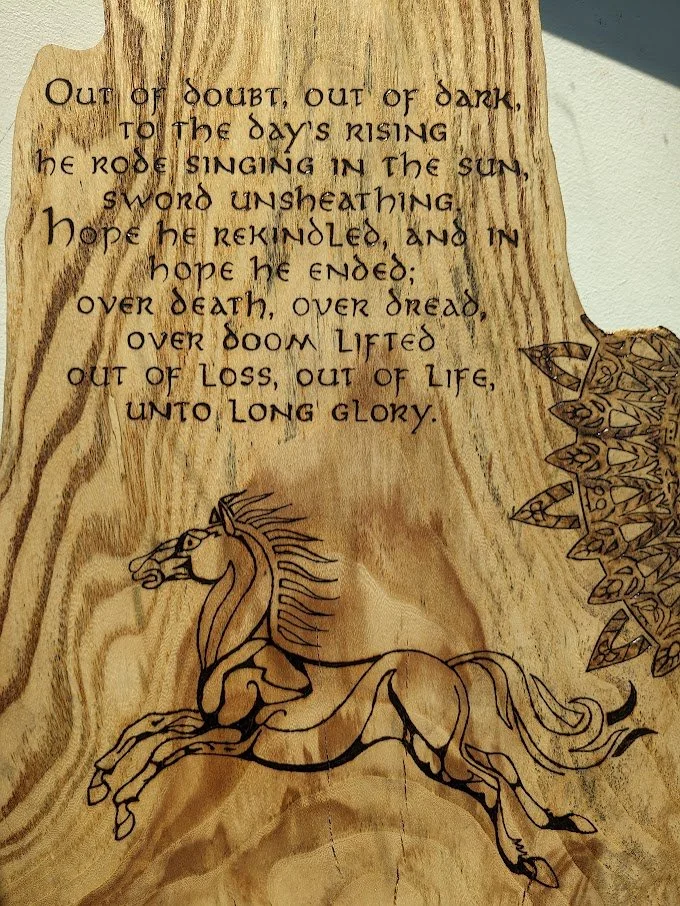 Out of doubt, out of dark,
to the day's rising
he rode singing in the sun,
sword unsheathing.
Hope he rekindled, and in
hope he ended;
over death, over dread,
over doom lifted
out of loss, out of life,
unto long glory.